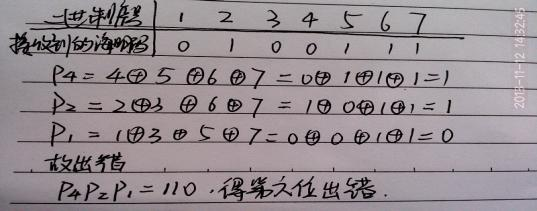 二进制序 1 2 3 4 5 6 7
接收到的海明码 0 1 0 0 1 1 1
P4 = 4⊕5⊕6⊕7 = 0⊕1⊕1⊕1 = 1
P2 = 2⊕3⊕6⊕7 = 1⊕0⊕1⊕1 = 1
P1 = 1⊕3⊕5⊕7 = 0⊕0⊕1⊕1 = 0
故出错
P4P2P1 = 110.得第六位出错.
2013-11-12 14:32:45